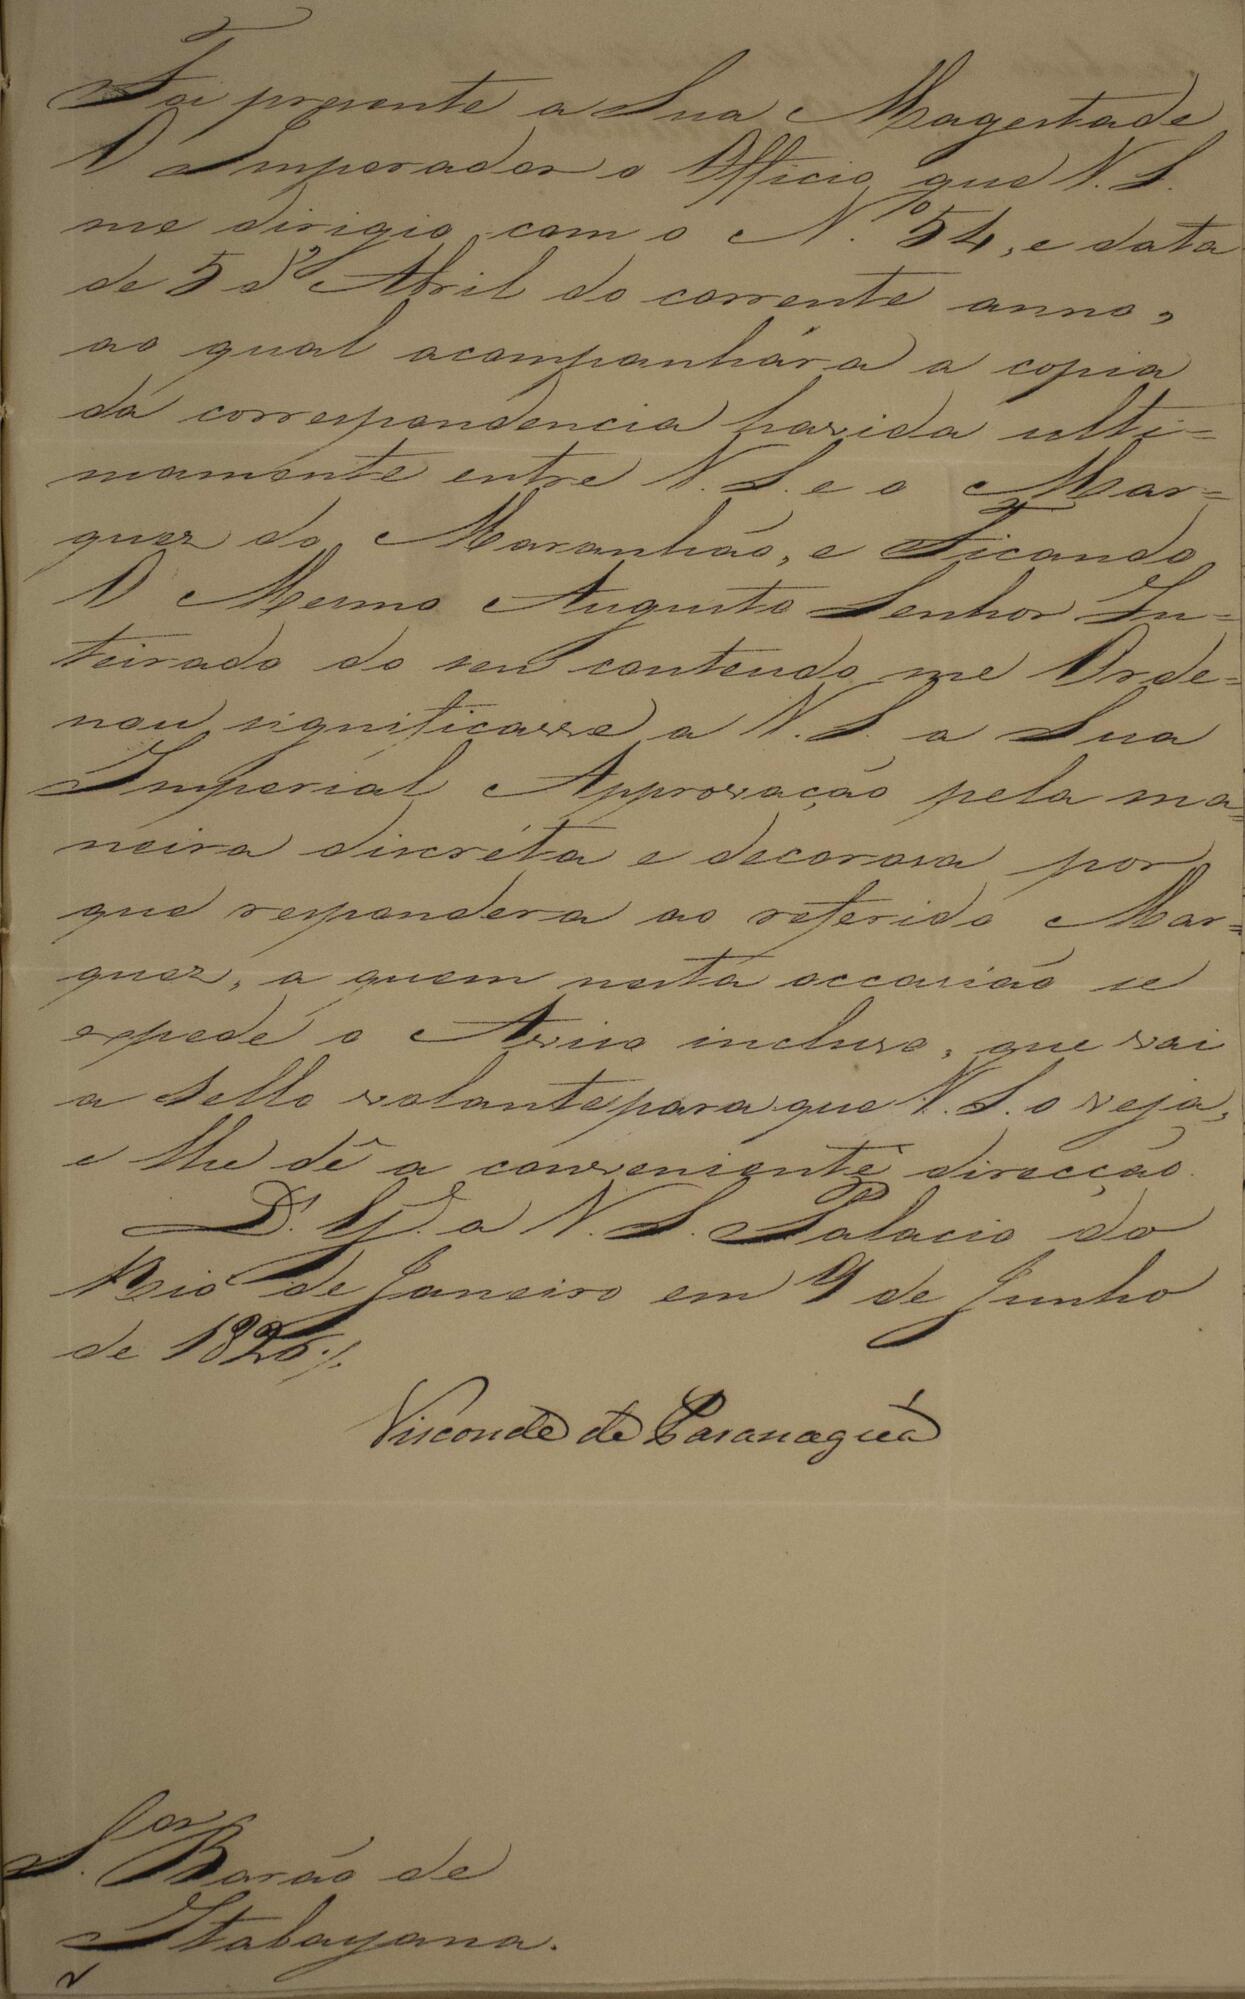 Foi presente a Sua Magestade
O Imperador o Officio que V. S.
me dirigio com o N.º 54, e data
de 5 d'Abril do corrente anno,
ao qual acompanhára a copia
da correspondencia havida ulti=
mamente entre V. S. e o Mar=
quez do Maranhão, e Ficando
O Mesmo Augusto Senhor In=
teirado do seu contendo me Orde=
nou significasse a V. S. a Sua
Imperial Approvação pela ma=
neira discréta e decorosa por
que respondera ao referido Mar=
quez, a quem nesta occasião se
expede o Aviso incluso, que vai
a Sello volante para que V. S. o veja,
e lhe dê a conveniente direcção.
D.s G.e a V. S. Palacio do
Rio de Janeiro em 9 de Junho
de 1826./.
Visconde de Paranaguá
S.or Barão de
Itabayana.